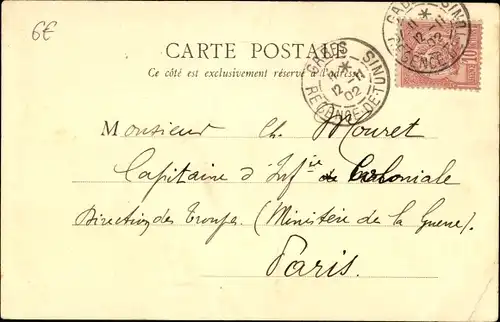 6€
CARTE POSTALE
Ce côté est exclusivement réservé à l'adresse
GABES SINUT
12-11
02
RÉGENCE-DE-T
Monsieur Ch. Mouret
Capitaine d'Infie Coloniale
Direction des Troupes. (Ministère de la Guerre).
Paris.
10